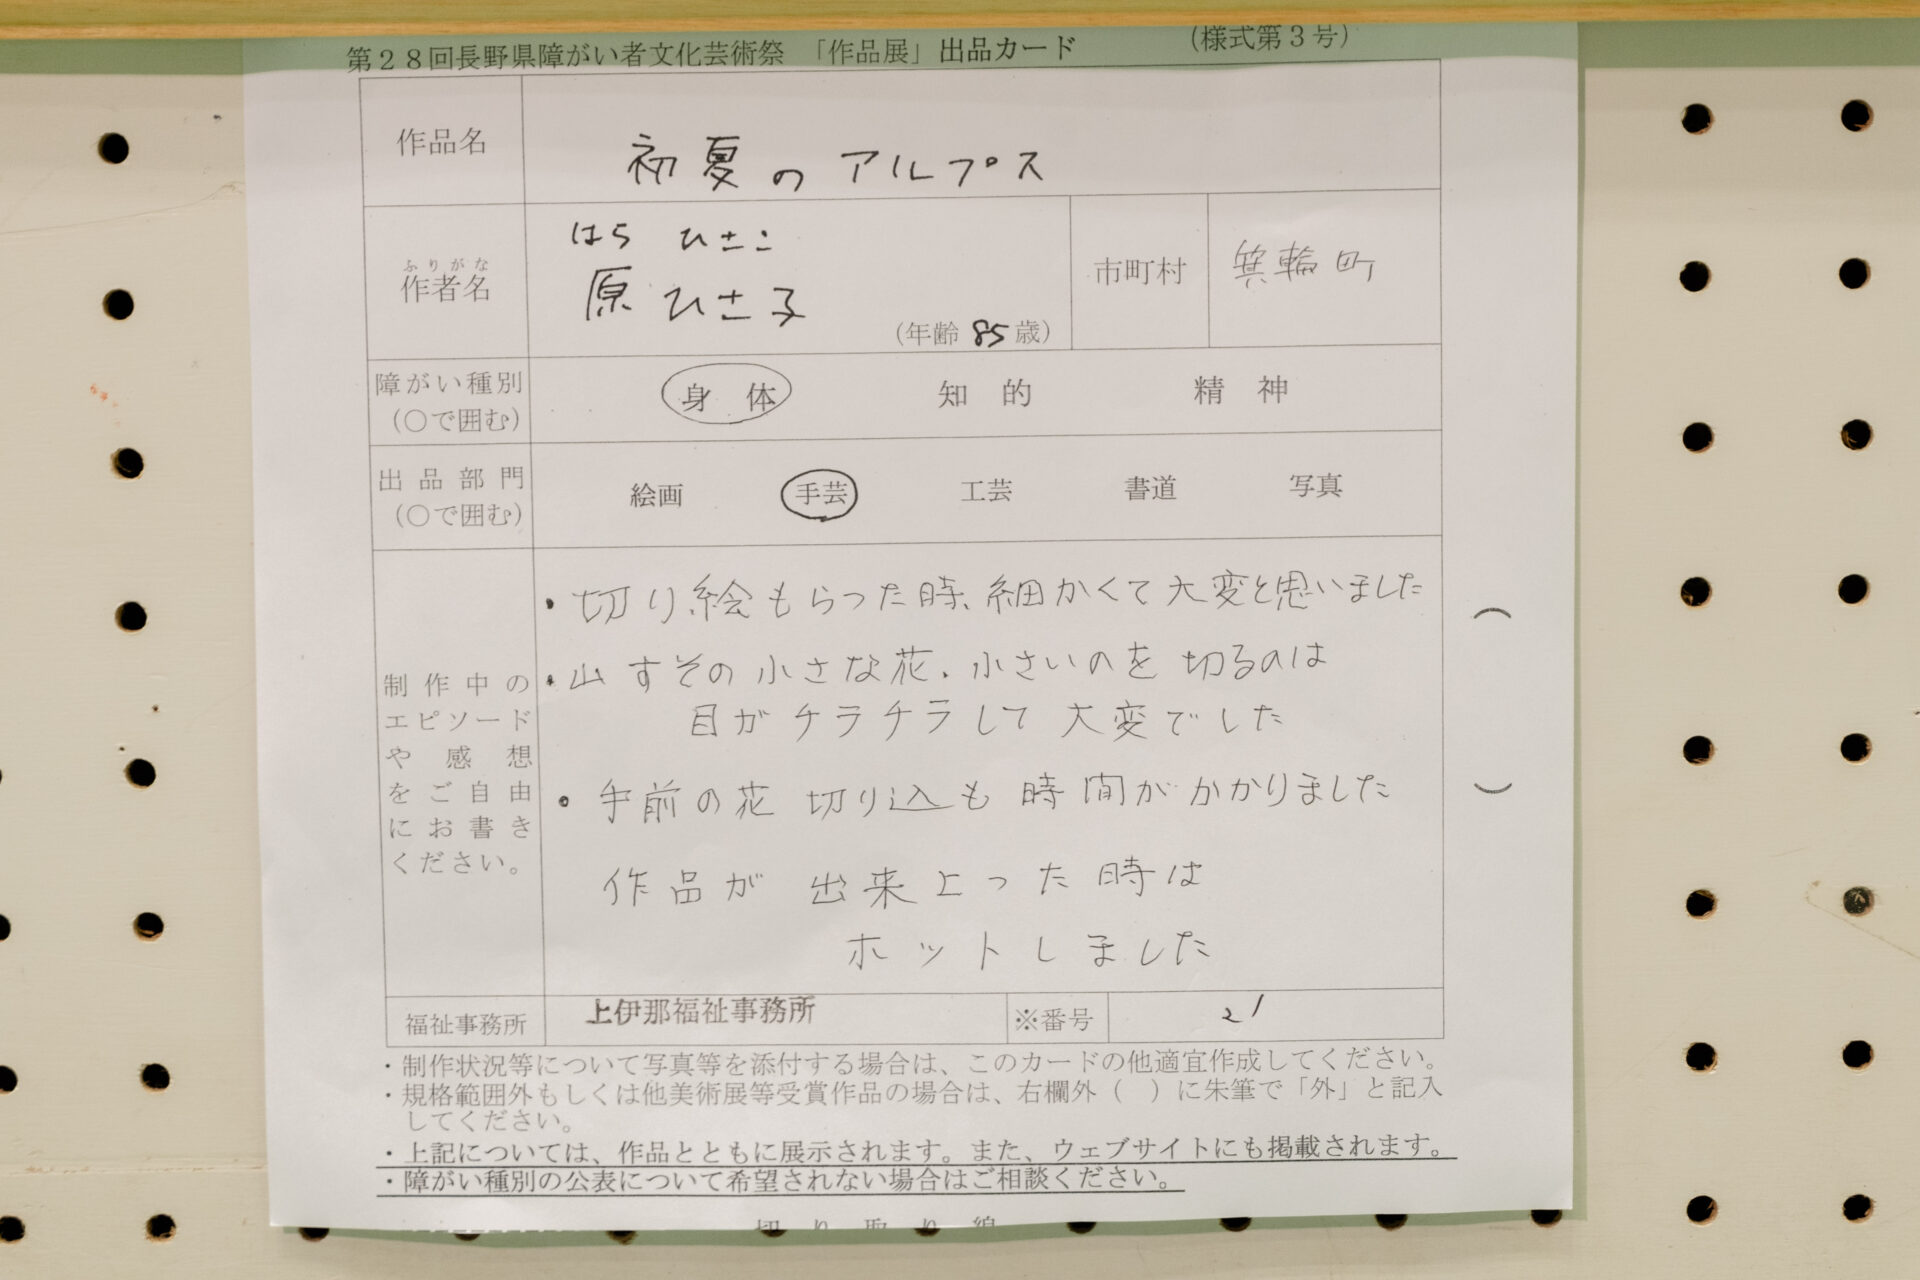 第28回長野県障がい者文化芸術祭 「作品展」出品カード (様式第3号)
作品名 初夏のアルプス
はら ひさこ
ふりがな
作者名 原 ひさ子 (年齢 85 歳) 市町村 箕輪町
障がい種別
(○で囲む) 身体 知的 精神
出品部門
(○で囲む) 絵画 手芸 工芸 書道 写真
制作中の
エピソード
や感想
をご自由
にお書き
ください。
・切り絵もらった時、細かくて大変と思いました
・山すその小さな花、小さいのを切るのは
目がチラチラして大変でした
・手前の花切り込も時間がかかりました
作品が出来上った時は
ホットしました
( )
福祉事務所 上伊那福祉事務所 ※番号 21
・制作状況等について写真等を添付する場合は、このカードの他適宜作成してください。
・規格範囲外もしくは他美術展等受賞作品の場合は、右欄外( )に朱筆で「外」と記入
してください。
・上記については、作品とともに展示されます。また、ウェブサイトにも掲載されます。
・障がい種別の公表について希望されない場合はご相談ください。
切り取り線